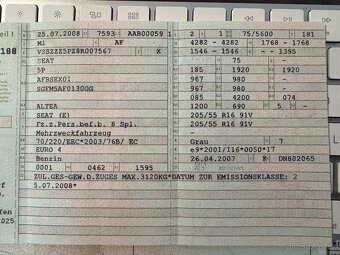 25.07.2008 7593 AAB00059 1
M1 AF
VSSZZZ5PZ8R007567 K
SEAT
5P
AFBSEX01
SGFM5AF0130GG
ALTEA
SEAT (E)
Fz.z.Pers.bef.b. 8 Spl.
Mehrzweckfahrzeug
70/220/EEC*2003/76B/ EC
EURO 4
Benzin
0001 0462 1595
2 1 75/5600 181
4282 - 4282 - 1768 - 1768
1546 - 1546 - - 1395
- 75 -
185 1920 1920
967 980 -
967 980 -
085 4200 074
1200 690 5 -
205/55 R16 91V
205/55 R16 91V
-
Grau 7
e9*2001/116*0050*17
26.04.2007 K DN802065
ZUL.GES-GEW.D.ZUGES MAX.3120KG*DATUM ZUR EMISSIONSKLASSE: 2
5.07.2008*
188